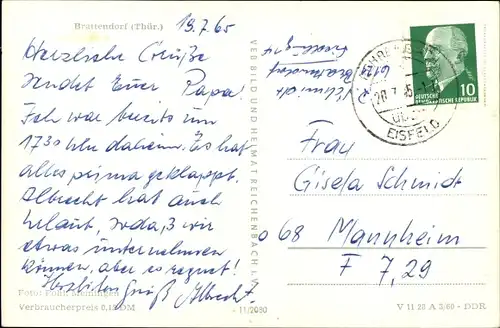 Brattendorf (Thür.)
19.7.65
Herzliche Grüße
sendet Euer Papa.
Ich war bereits um
17 30 Uhr daheim. Es hat
alles prima geklappt.
Albrecht hat auch
Urlaub, sodaß wir
etwas unternehmen
können, aber es regnet!
Herzlichen Gruß Albrecht
Foto:
Verbraucherpreis 0,15 DM
VERB BILD UND HEIMAT REICHENBACH I. V.
11/2080
Schmidt
6121 Brattendorf
DEUTSCHE
DEMOKRATISCHE REPUBLIK
10
EISFELD
Frau
Gisela Schmidt
68 Mannheim
F 7, 29
V 11 28 A 3/60 - DDR